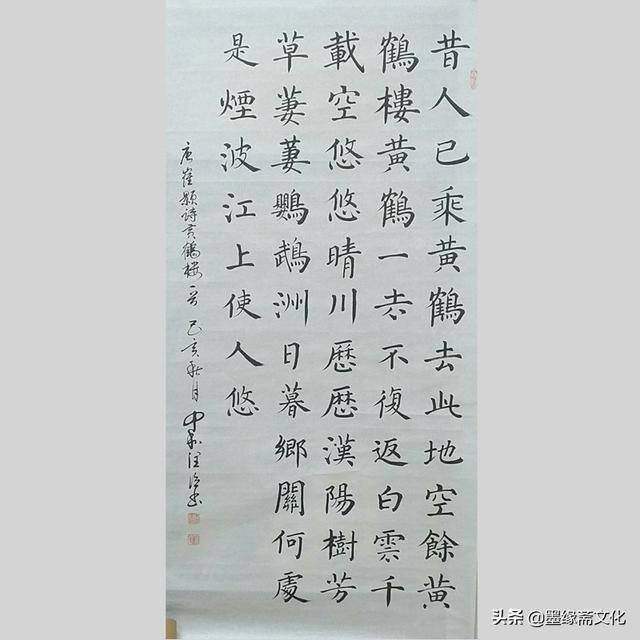 昔人已乘黃鶴去此地空餘黃
鶴樓黃鶴一去不復返白雲千
載空悠悠晴川歷歷漢陽樹芳
草萋萋鸚鵡洲日暮鄉關何處
是煙波江上使人悠
唐崔顥詩黃鶴樓一首 己亥秋月
头条 @墨缘斋文化